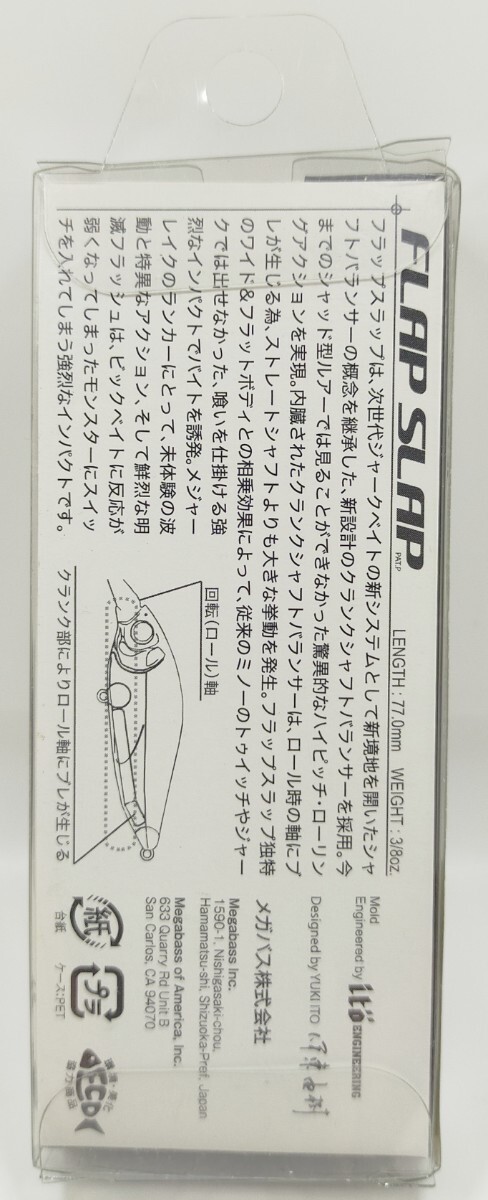 FLAP SLAP
PAT.P
LENGTH : 77.0mm WEIGHT : 3/8oz.
フラップスラップは、次世代ジャークベイトの新システムとして新境地を開いたシャ
フトバランサーの概念を継承した、新設計のクランクシャフトバランサーを採用。今
までのシャッド型ルアーでは見ることができなかった驚異的なハイピッチ・ローリン
グアクションを実現。内臓されたクランクシャフトバランサーは、ロール時の軸にブ
レが生じる為、ストレートシャフトよりも大きな挙動を発生。フラップスラップ独特
のワイド&フラットボディとの相乗効果によって、従来のミノーのトゥイッチやジャー
クでは出せなかった、喰いを仕掛ける強
烈なインパクトでバイトを誘発。メジャー
レイクのランカーにとって、未体験の波
動と特異なアクション、そして鮮烈な明
滅フラッシュは、ビックベイトに反応が
弱くなってしまったモンスターにスイッ
チを入れてしまう強烈なインパクトです。
回転(ロール)軸
クランク部によりロール軸にブレが生じる
Mold
Engineered by ito ENGINEERING
Designed by YUKI ITO
メガバス株式会社
Megabass Inc.
1590-1, Nishigasaki-chou,
Hamamatsu-shi, Shizuoka-Pref, Japan
Megabass of America, Inc.
633 Quarry Rd Unit B
San Carlos, CA 94070
紙
台紙
プラ
ケース:PET
FECO